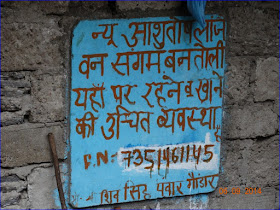 न्यू आशुतोष लॉज
वन संगम बनतोली
यहाँ पर रहने व खाने
की उचित व्यवस्था
P.N- 7351461145
शिव सिंह पंवार गौंडार